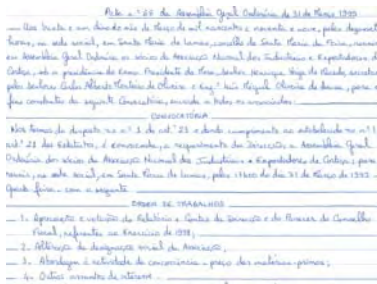 Acta n.º 28 da Assembleia Geral Ordinária de 31 de Março 1999
— Aos trinta e um dias do mês de Março de mil novecentos e noventa e nove, pelas dezassete
horas, na sede social, em Santa Maria de Lamas, concelho de Santa Maria da Feira, reuniu
em Assembleia Geral Ordinária os sócios da Associação Nacional dos Industriais e Exportadores de
Cortiça, sob a presidência do Exmo. Presidente da Mesa, Senhor Henrique Veiga de Macedo, secretariado
pelos Senhores Carlos Alberto Monteiro de Oliveira e Eng.º Luís Miguel Oliveira de Sousa, para
fins constantes da seguinte Convocatória, enviada a todos os associados:
CONVOCATÓRIA
Nos termos do disposto no n.º 1 do art.º 23 e dando cumprimento ao estabelecido no n.º 1
art.º 21 dos Estatutos, é convocada, a requerimento da Direcção a Assembleia Geral
Ordinária dos sócios da Associação Nacional dos Industriais e Exportadores de Cortiça, para
reunir, na sede social, em Santa Maria de Lamas, pelas do dia 31 de Março de 1999 -
Quarta-feira - com a seguinte
ORDEM DE TRABALHOS
— 1- Apreciação e votação do Relatório e Contas da Direcção e do Parecer do Conselho
Fiscal, referentes ao Exercício de 1998;
— 2- Alteração da designação social da Associação;
— 3- Abordagem à actividade da concorrência - preço das matérias-primas;
— 4- Outros assuntos de interesse.